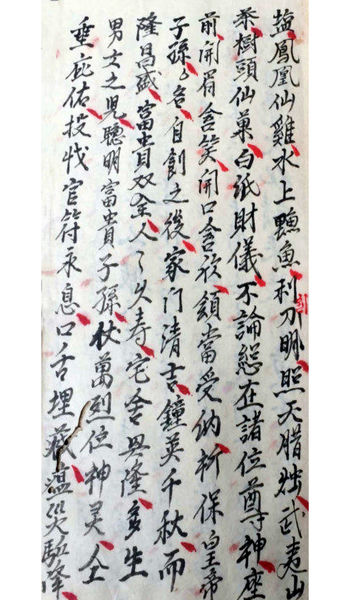 塩鳳凰仙雞水上鴨魚利刀明照天腊燭武夷山
茶樹頭仙菓白紙財儀不論總在諸位尊神座
前開眉含笑開口含欣領當受納祈保皇帝
子孫〻名自創之後家門清吉鐘英千秋而
隆昌盛富貴双全人〻久壽宅舍興隆多生
男女之児聰明富貴子孫杖萬烈位神灵仝
垂庇佑投伐官符永息口舌埋藏瘟災駈降